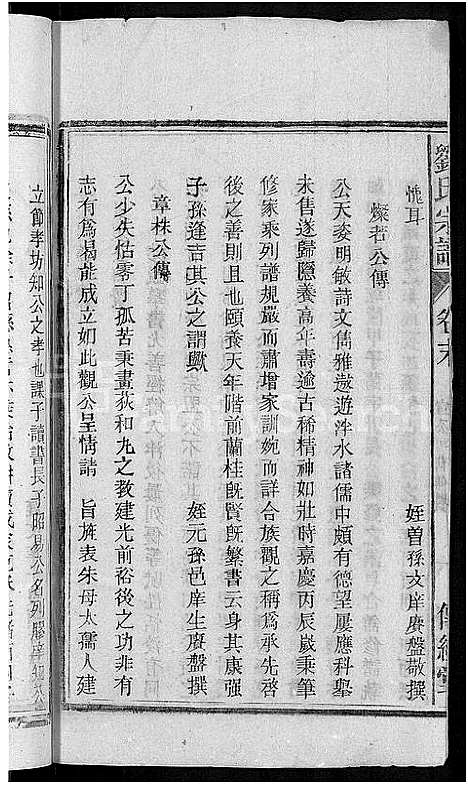 劉氏宗譜
卷末
愧耳
姪曾孫文庠賡盤敬撰
燦若公傳
公天姿明敏詩文儁雅遨遊泮水諸儒中頗有德望屢應科舉
未售遂歸隱養高年壽逾古稀精神如壯時嘉慶丙辰歲秉筆
修家乘列譜規嚴而肅增家訓婉而詳合族觀之稱為承先啓
後之善則且也頤養天年階前蘭桂既賢既繁書云身其康强
子孫逢吉其公之謂歟
姪元孫邑庠生賡盤撰
章株公傳
公少失怙零丁孤苦秉畫荻和丸之教建光前裕後之功非有
志有為曷能成立如此觀公呈情請 旨旌表朱母太孺人建
立節孝坊知公之孝也課子讀書長子昭易公名列膠庠